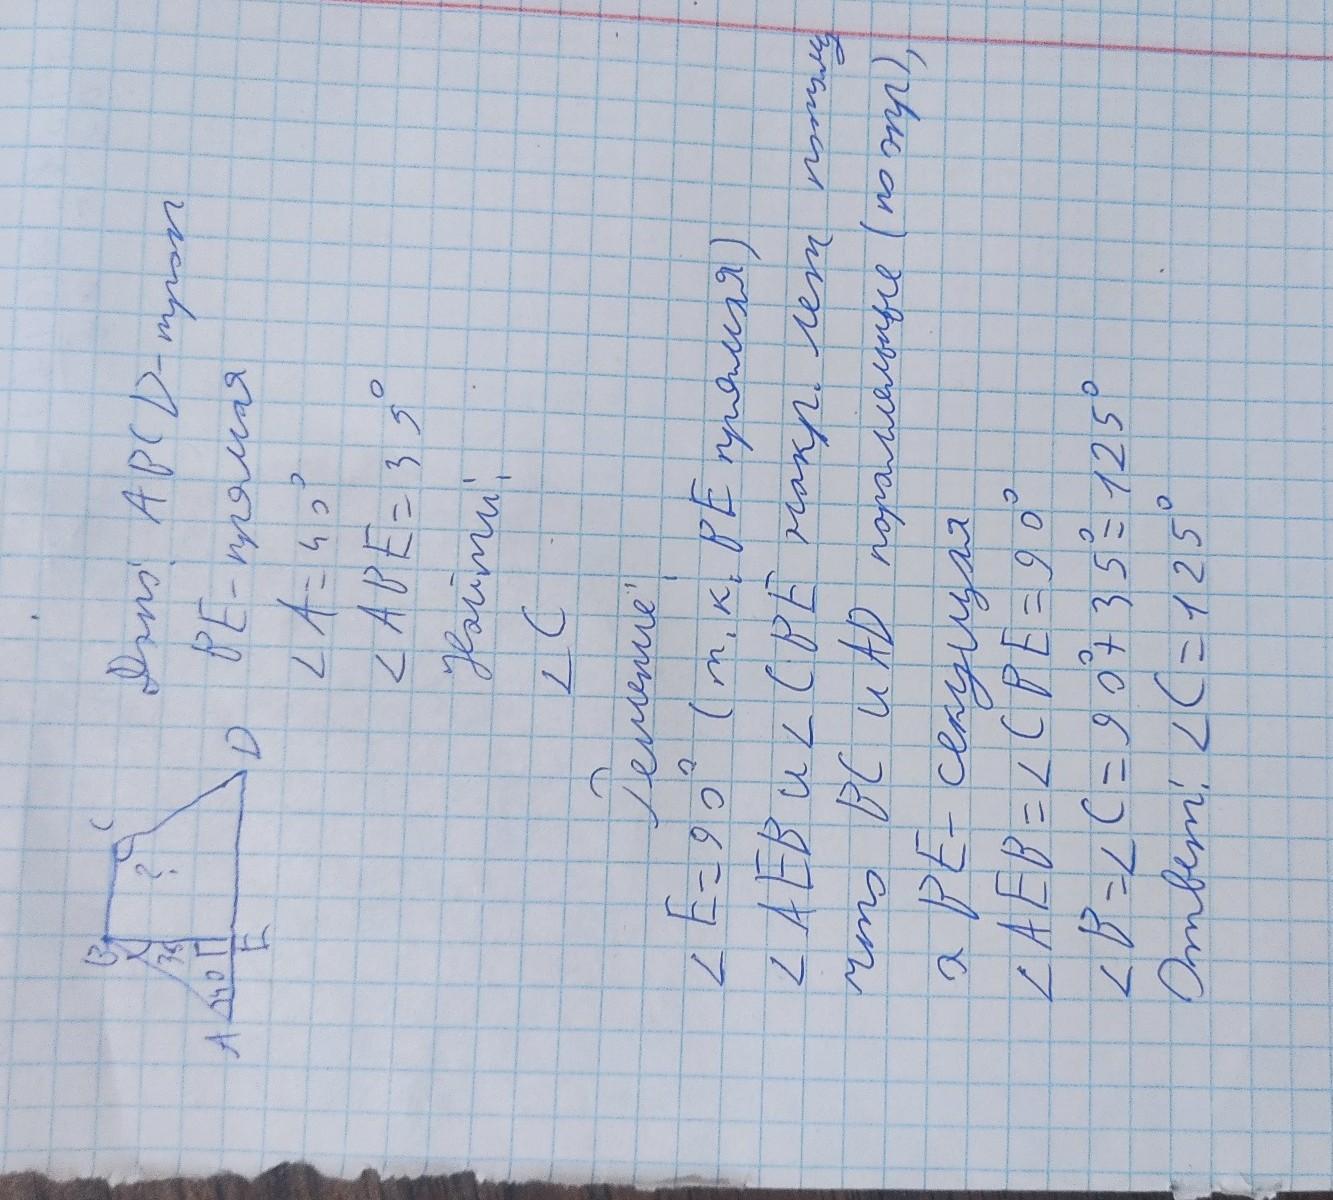 Дано: ABCD - трап
BE - прямая
∠A = 40°
∠ABE = 35°
Найти:
∠C
B
C
?
35
40
A
E
D
Решение:
∠E = 90° (т.к. BE прямая)
∠AEB и ∠CBE накр. леж потому
что BC и AD параллельные (по опр),
а BE - секущая
∠AEB = ∠CBE = 90°
∠B = ∠C = 90° + 35° = 125°
Ответ: ∠C = 125°